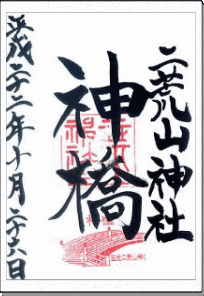 二荒山神社
神橋
平成二十二年十月二十六日